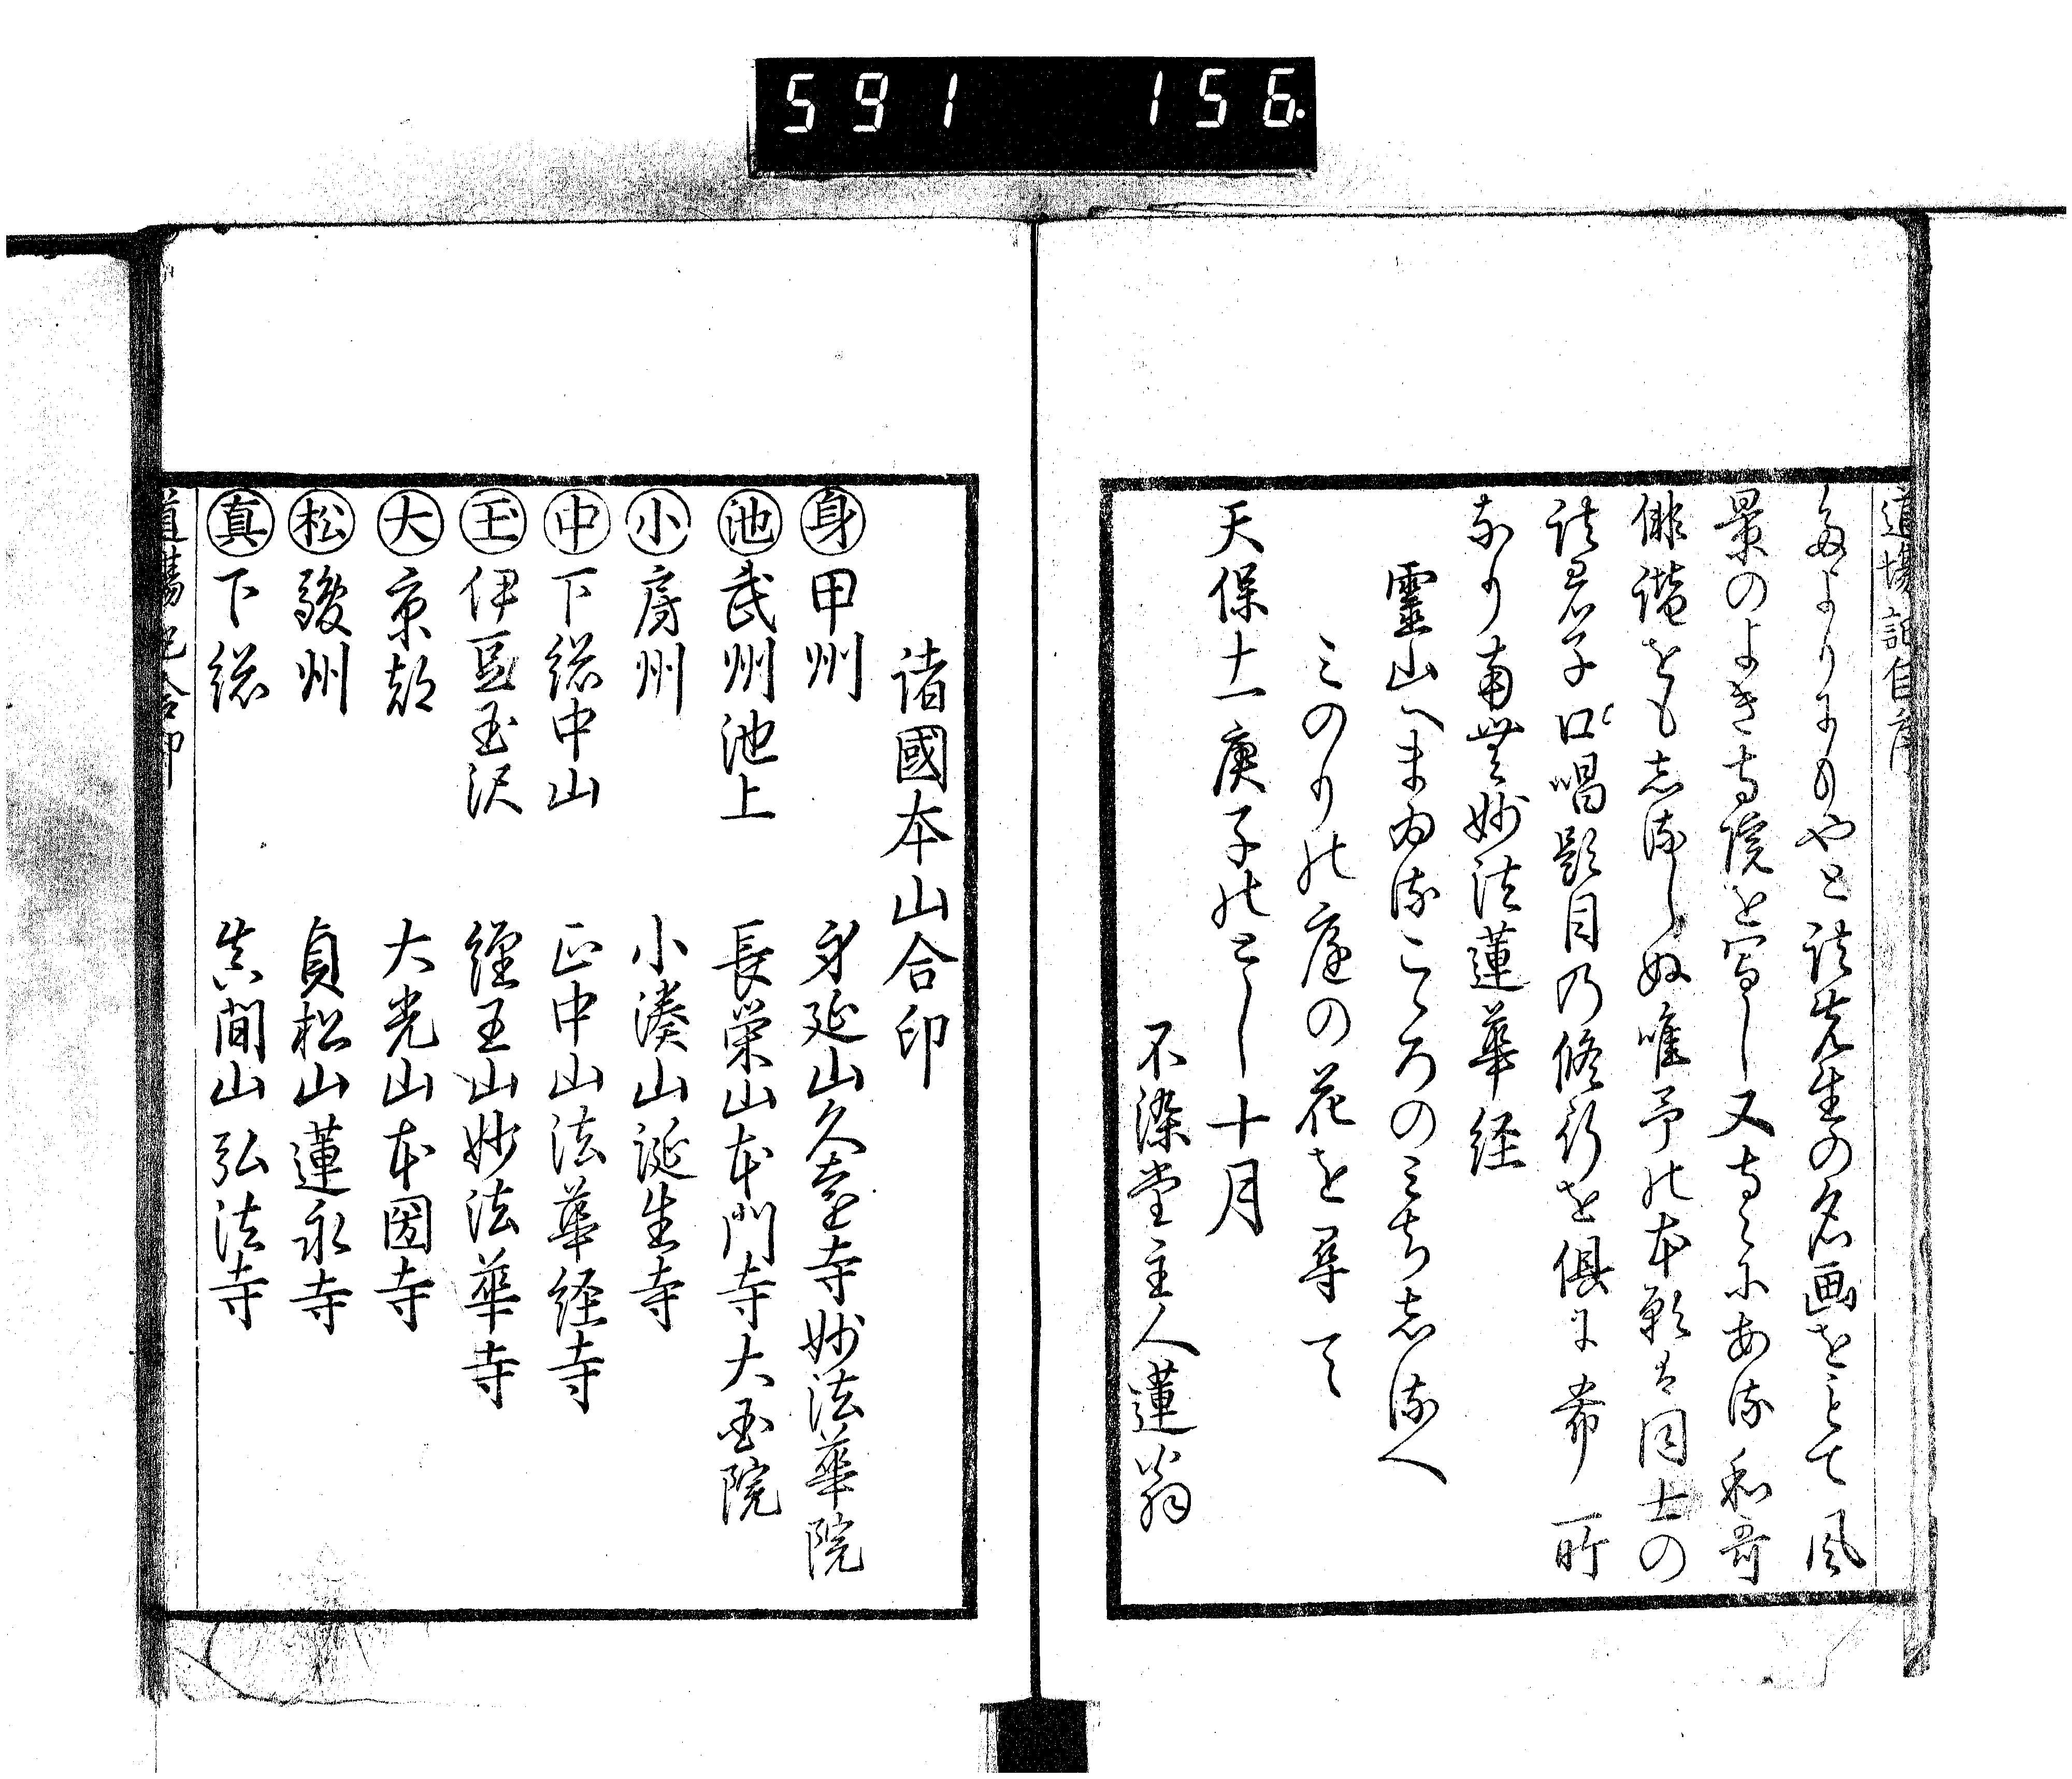 591 156
道場記自序
たよりにもやと諸先生の名画をもとて風
景のよき寺院を写し又寺々にある和哥
俳諧をも志るしぬ唯予の本願は同士の
諸君子口唱題目乃修行を倶に希ふ所
なり南無妙法蓮華経
霊山へまゐるこゝろのみち志るへ
みのりの庭の花を尋て
天保十一庚子のとし十月
不染堂主人蓮翁
諸國本山合印
身 甲州 身延山久遠寺妙法華院
池 武州池上 長栄山本門寺大国院
小 房州 小湊山誕生寺
中 下総中山 正中山法華経寺
玉 伊豆玉沢 経王山妙法華寺
大 京都 大光山本圀寺
松 駿州 貞松山蓮永寺
真 下総 真間山弘法寺
道場記合印